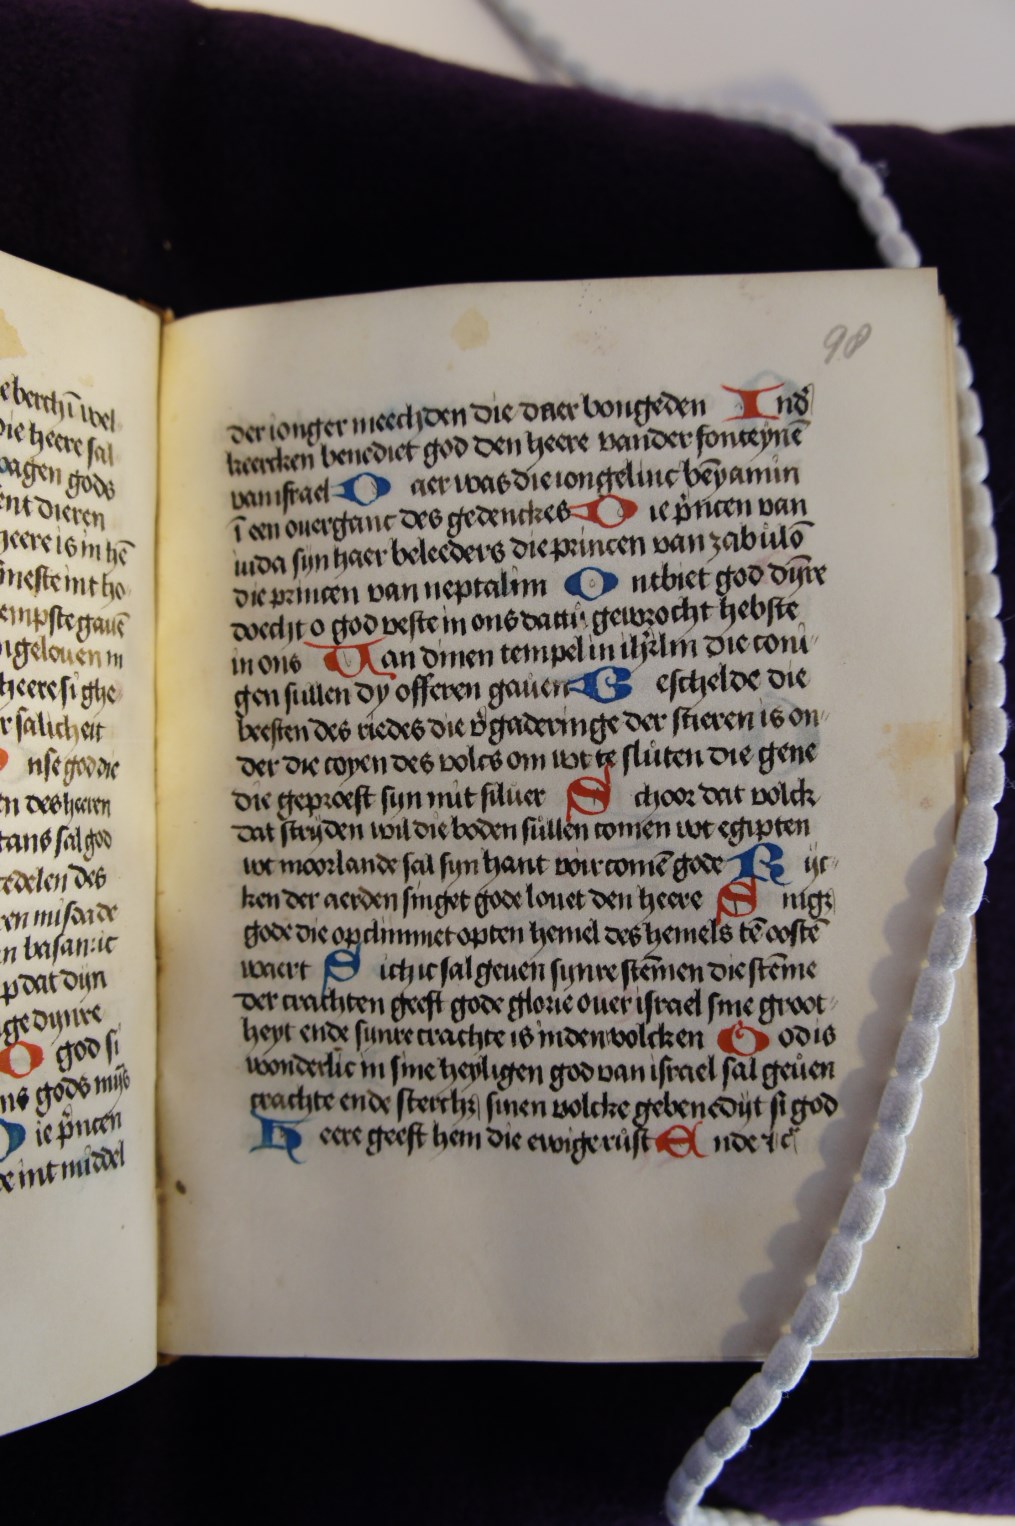 e berch ī wel
die heere sal
wagen gods
ent dieren
heere is in hē
neste int ho
empste gauē
ngelouen in
heere si ghe
r salicheit
nse god die
en des heeren
tans sal god
edelen des
ren misdade
n basan: ic
p dat dyn
ge dynre
O god si
ns gods mijs
D ie p̄ncen
de int middel
98
der ionger meechden die daer bongeden Ind̄
keercken benedict god den heere vander fonteynē
van israel D aer was die iongelinc beniamin
ī een ouerganc des gedenckes D ie p̄ncen van
iuda syn haer beleeders die princen van zabulō
die princen van neptalim O ntbiet god dȳre
doecht o god veste in ons dattu gewrocht hebste
in ons U an dinen tempel in ihr̄lm die coni-
gen sullen dy offeren gauen G escheld die
beesten des riedes die v̄gaderinge der stieren is on-
der die coyen des volcs om wt te sluten die gene
die geproeft syn mit siluer S choor dat volck
dat stryden wil die boden sullen comen wt egipten
wt moorlande sal syn hant voir comē gode R ijc-
ken der aerden singet gode louet den heere S nigt
gode die opclimmet opten hemel des hemels tē oostē
waert S ich ic sal geuen synre stēmen die stēme
der crachten geeft gode glorie ouer israel sine groot-
heyt ende synre crachte is inden wolcken G od is
wonderlic in sine heyligen god van israel sal geuen
crachte ende sterckt sinen volcke gebenedijt si god
H eere geeft hem die ewige rust E nde ⁊c̄